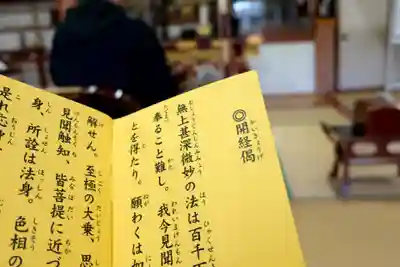 ◎開経偈
無上甚深微妙の法は百千万
奉ること難し。我今見聞
とを得たり。願わくは如
解せん。至極の大乗、思
見聞触知、皆菩提に近づ
身。所詮は法身。色相の